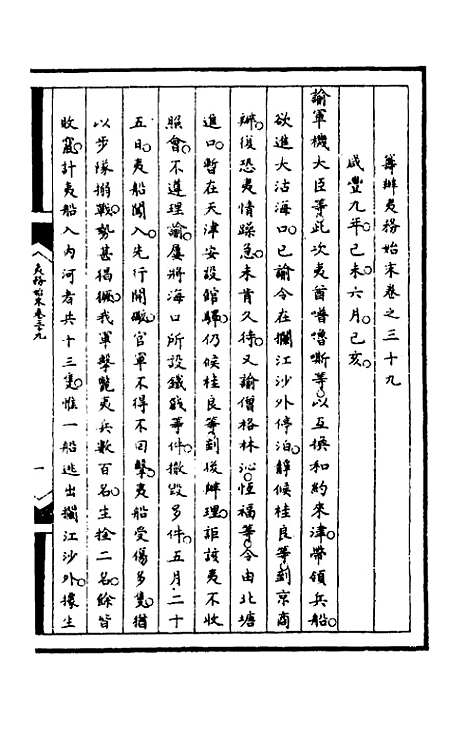 籌辦夷務始末卷之三十九
咸豐九年己未六月己亥。
諭軍機大臣等此次夷酋嚕嘶等。以互換和約來津。帶領兵船。
欲進大沽海口。已諭令在攔江沙外停泊。靜候桂良等到京商
辦。復恐夷情躁急。未肯久待。又諭僧格林沁。恆福等。令由北塘
進口。暫在天津安設館驛。仍候桂良等到後辦理。詎該夷不收
照會。不遵理諭。屢將海口所設鐵戧等件。撤毀多件。五月二十
五日。夷船闖入。先行開礮。官軍不得不回擊。夷船受傷多隻。猶
以步隊搦戰。勢甚猖獗。我軍擊斃夷兵數百名。生擒二名。餘皆
收竄。計夷船入內河者共十三隻。惟一船逃出攔江沙外。據生
夷務始末卷三十九
一